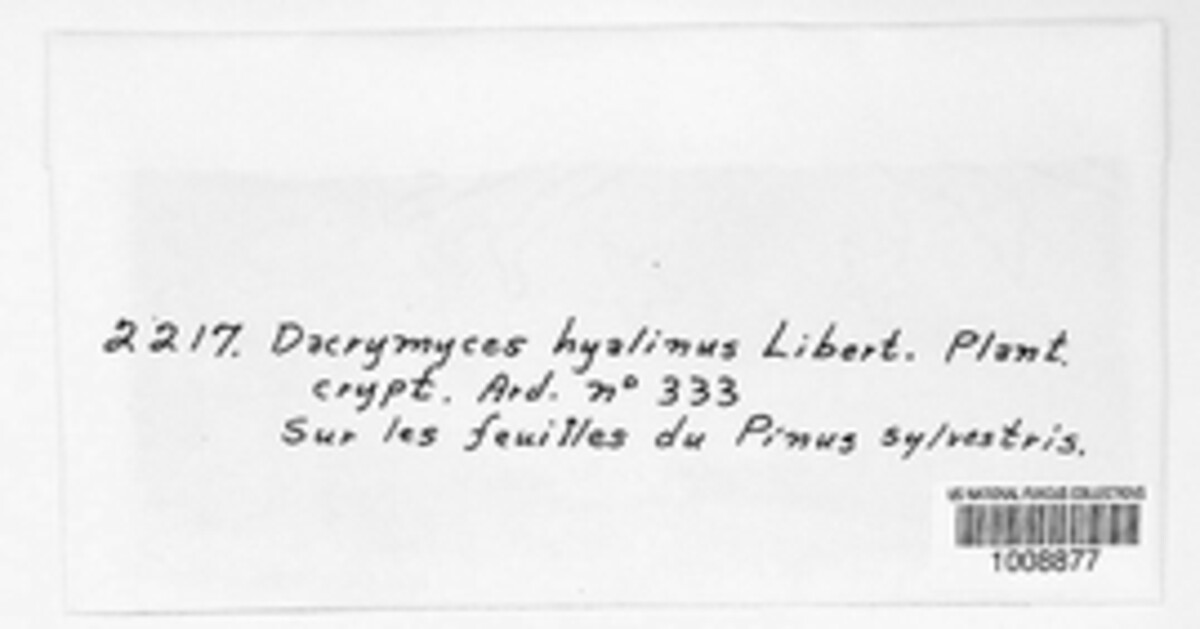 2217. Dacrymyces hyalinus Libert. Plant.
crypt. Ard. nº 333
Sur les feuilles du Pinus sylvestris.
US NATIONAL FUNGUS COLLECTIONS
1008877